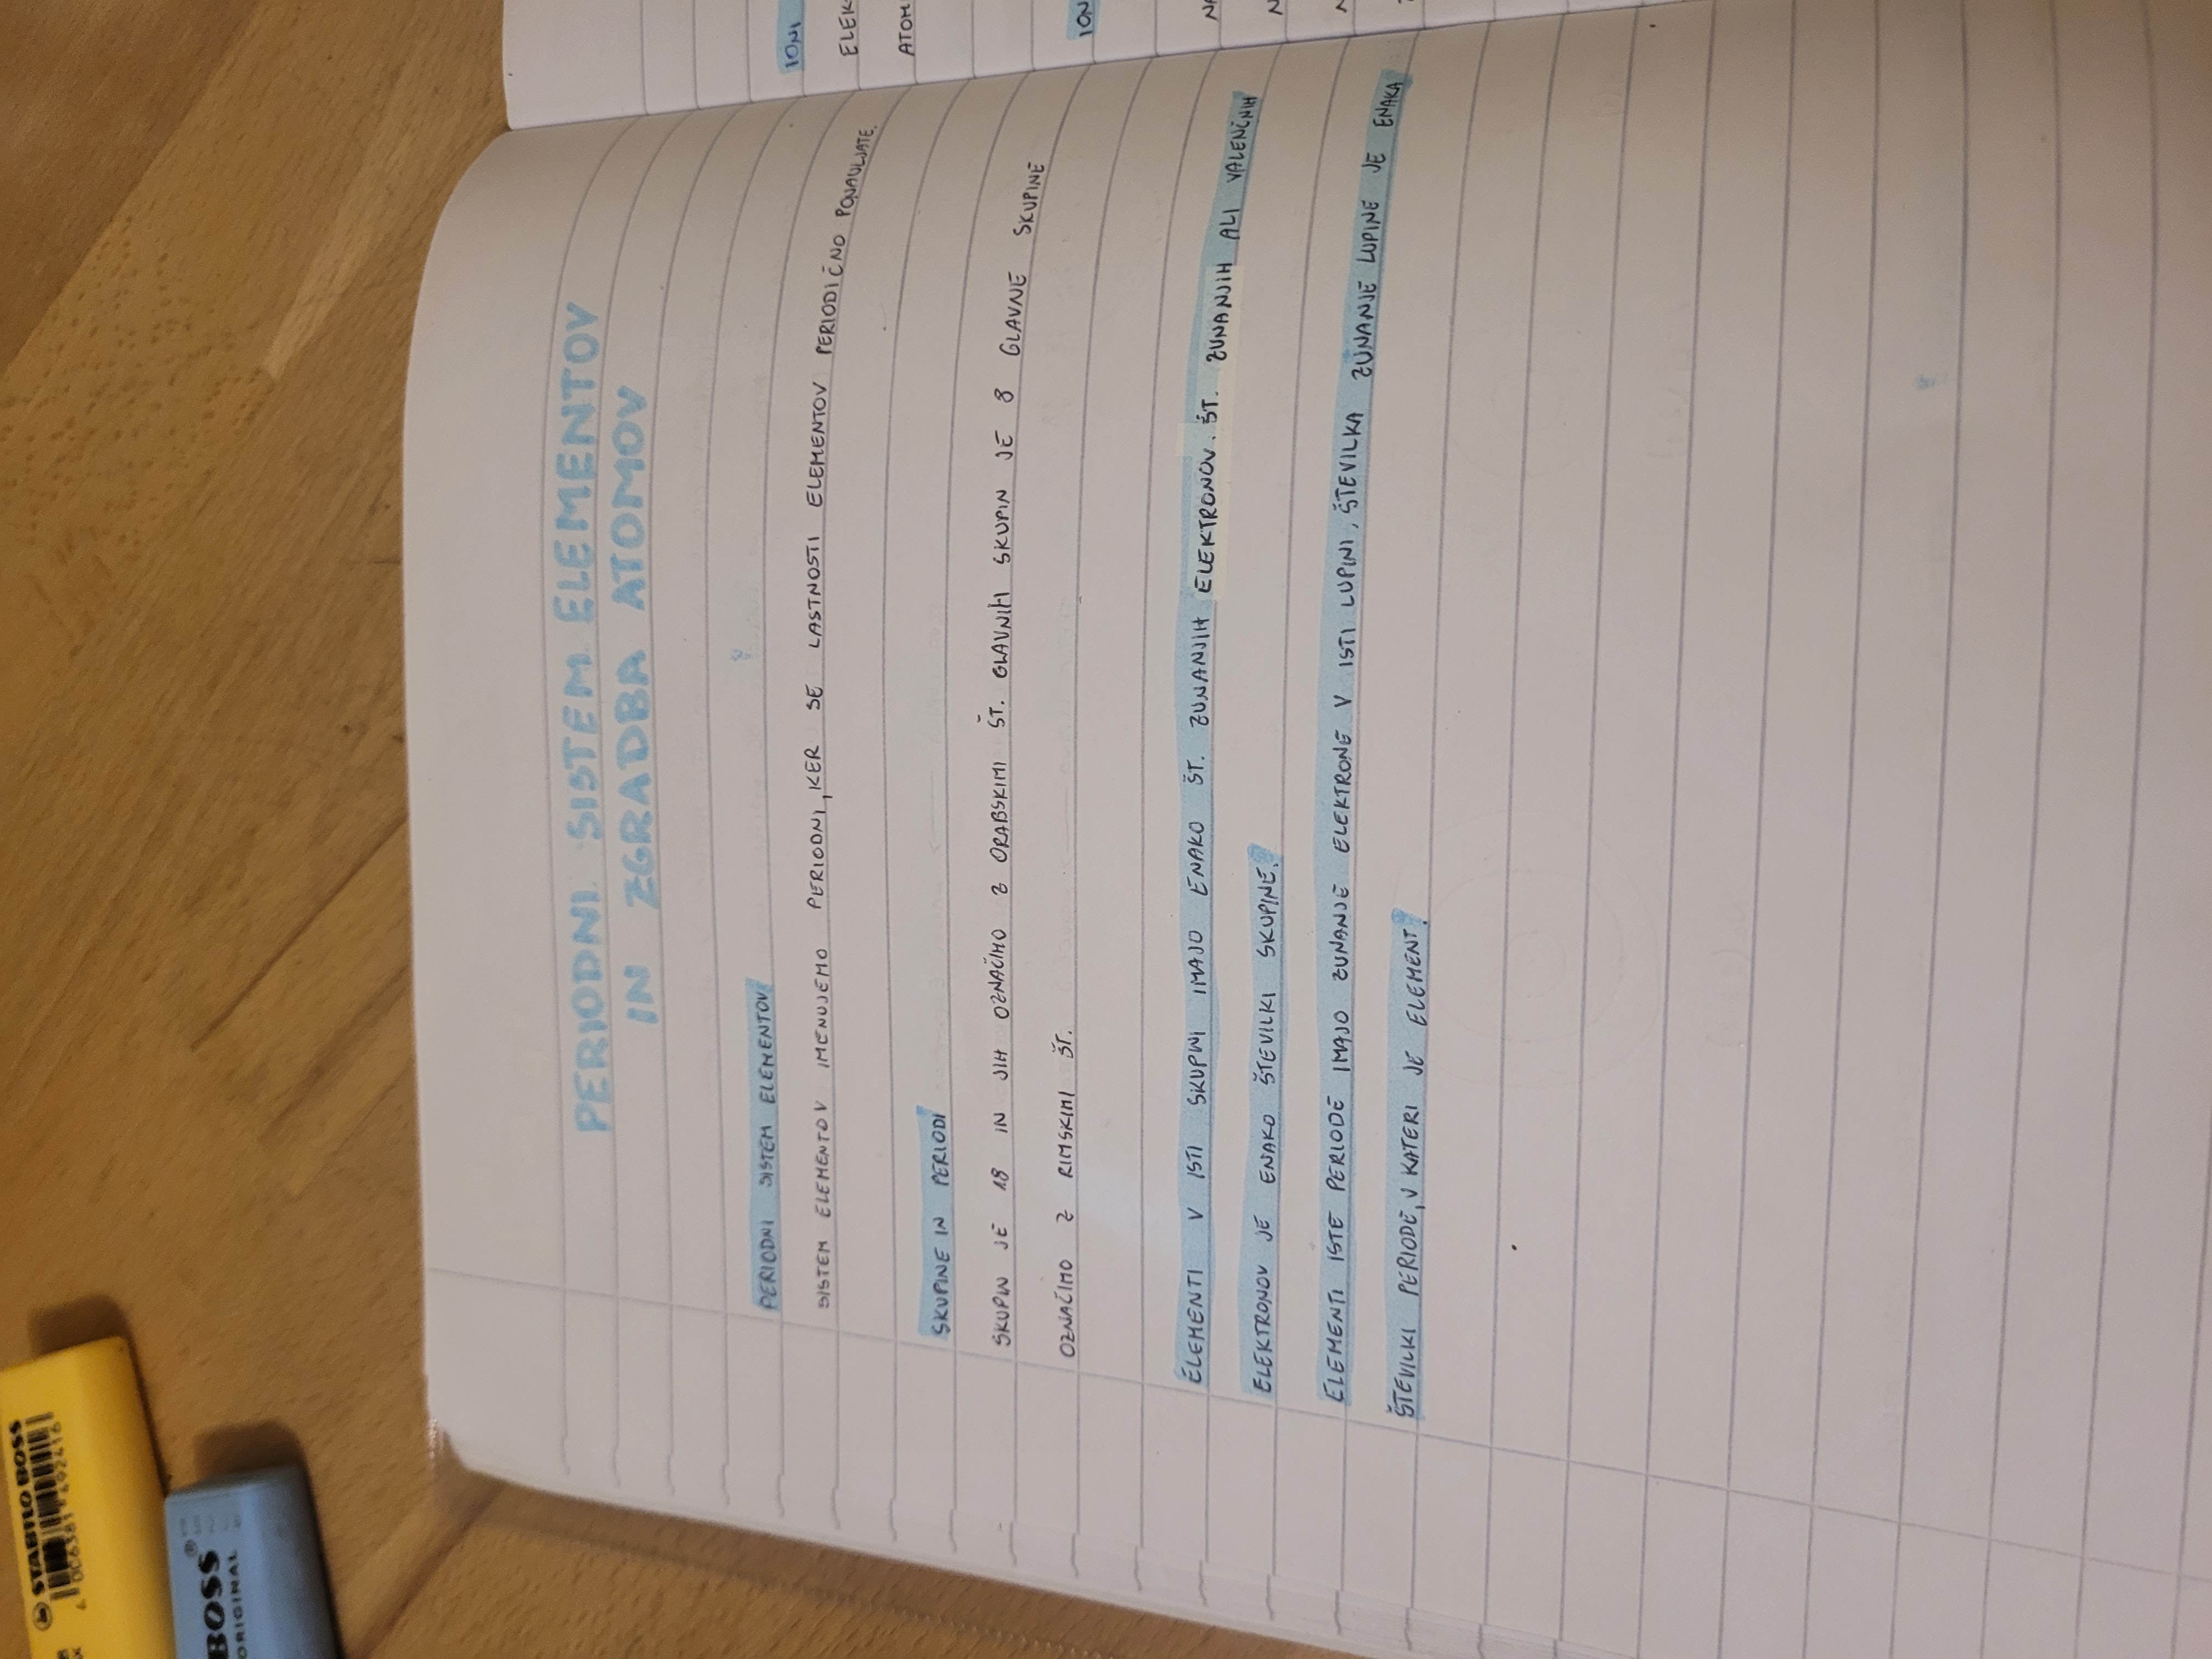 PERIODNI SISTEM ELEMENTOV
IN ZGRADBA ATOMOV
PERIODNI SISTEM ELEMENTOV
SISTEM ELEMENTOV IMENUJEMO PERIODNI, KER SE LASTNOSTI ELEMENTOV PERIODIČNO PONAVLJATE.
SKUPINE IN PERIODI
SKUPIN JE 18 IN JIH OZNAČIMO Z ORABSKIMI ŠT. GLAVNIH SKUPIN JE 8 GLAVNE SKUPINE
OZNAČIMO Z RIMSKIMI ŠT.
ELEMENTI V ISTI SKUPINI IMAJO ENAKO ŠT. ZUNANJIH ELEKTRONOV. ŠT. ZUNANJIH ALI VALENČNIH
ELEKTRONOV JE ENAKO ŠTEVILKI SKUPINE.
ELEMENTI ISTE PERIODE IMAJO ZUNANJE ELEKTRONE V ISTI LUPINI, ŠTEVILKA ZUNANJE LUPINE JE ENAKA
ŠTEVILKI PERIODE, V KATERI JE ELEMENT.
IONI
ELEK
ATOM
ION
STABILO BOSS
BOSS
ORIGINAL